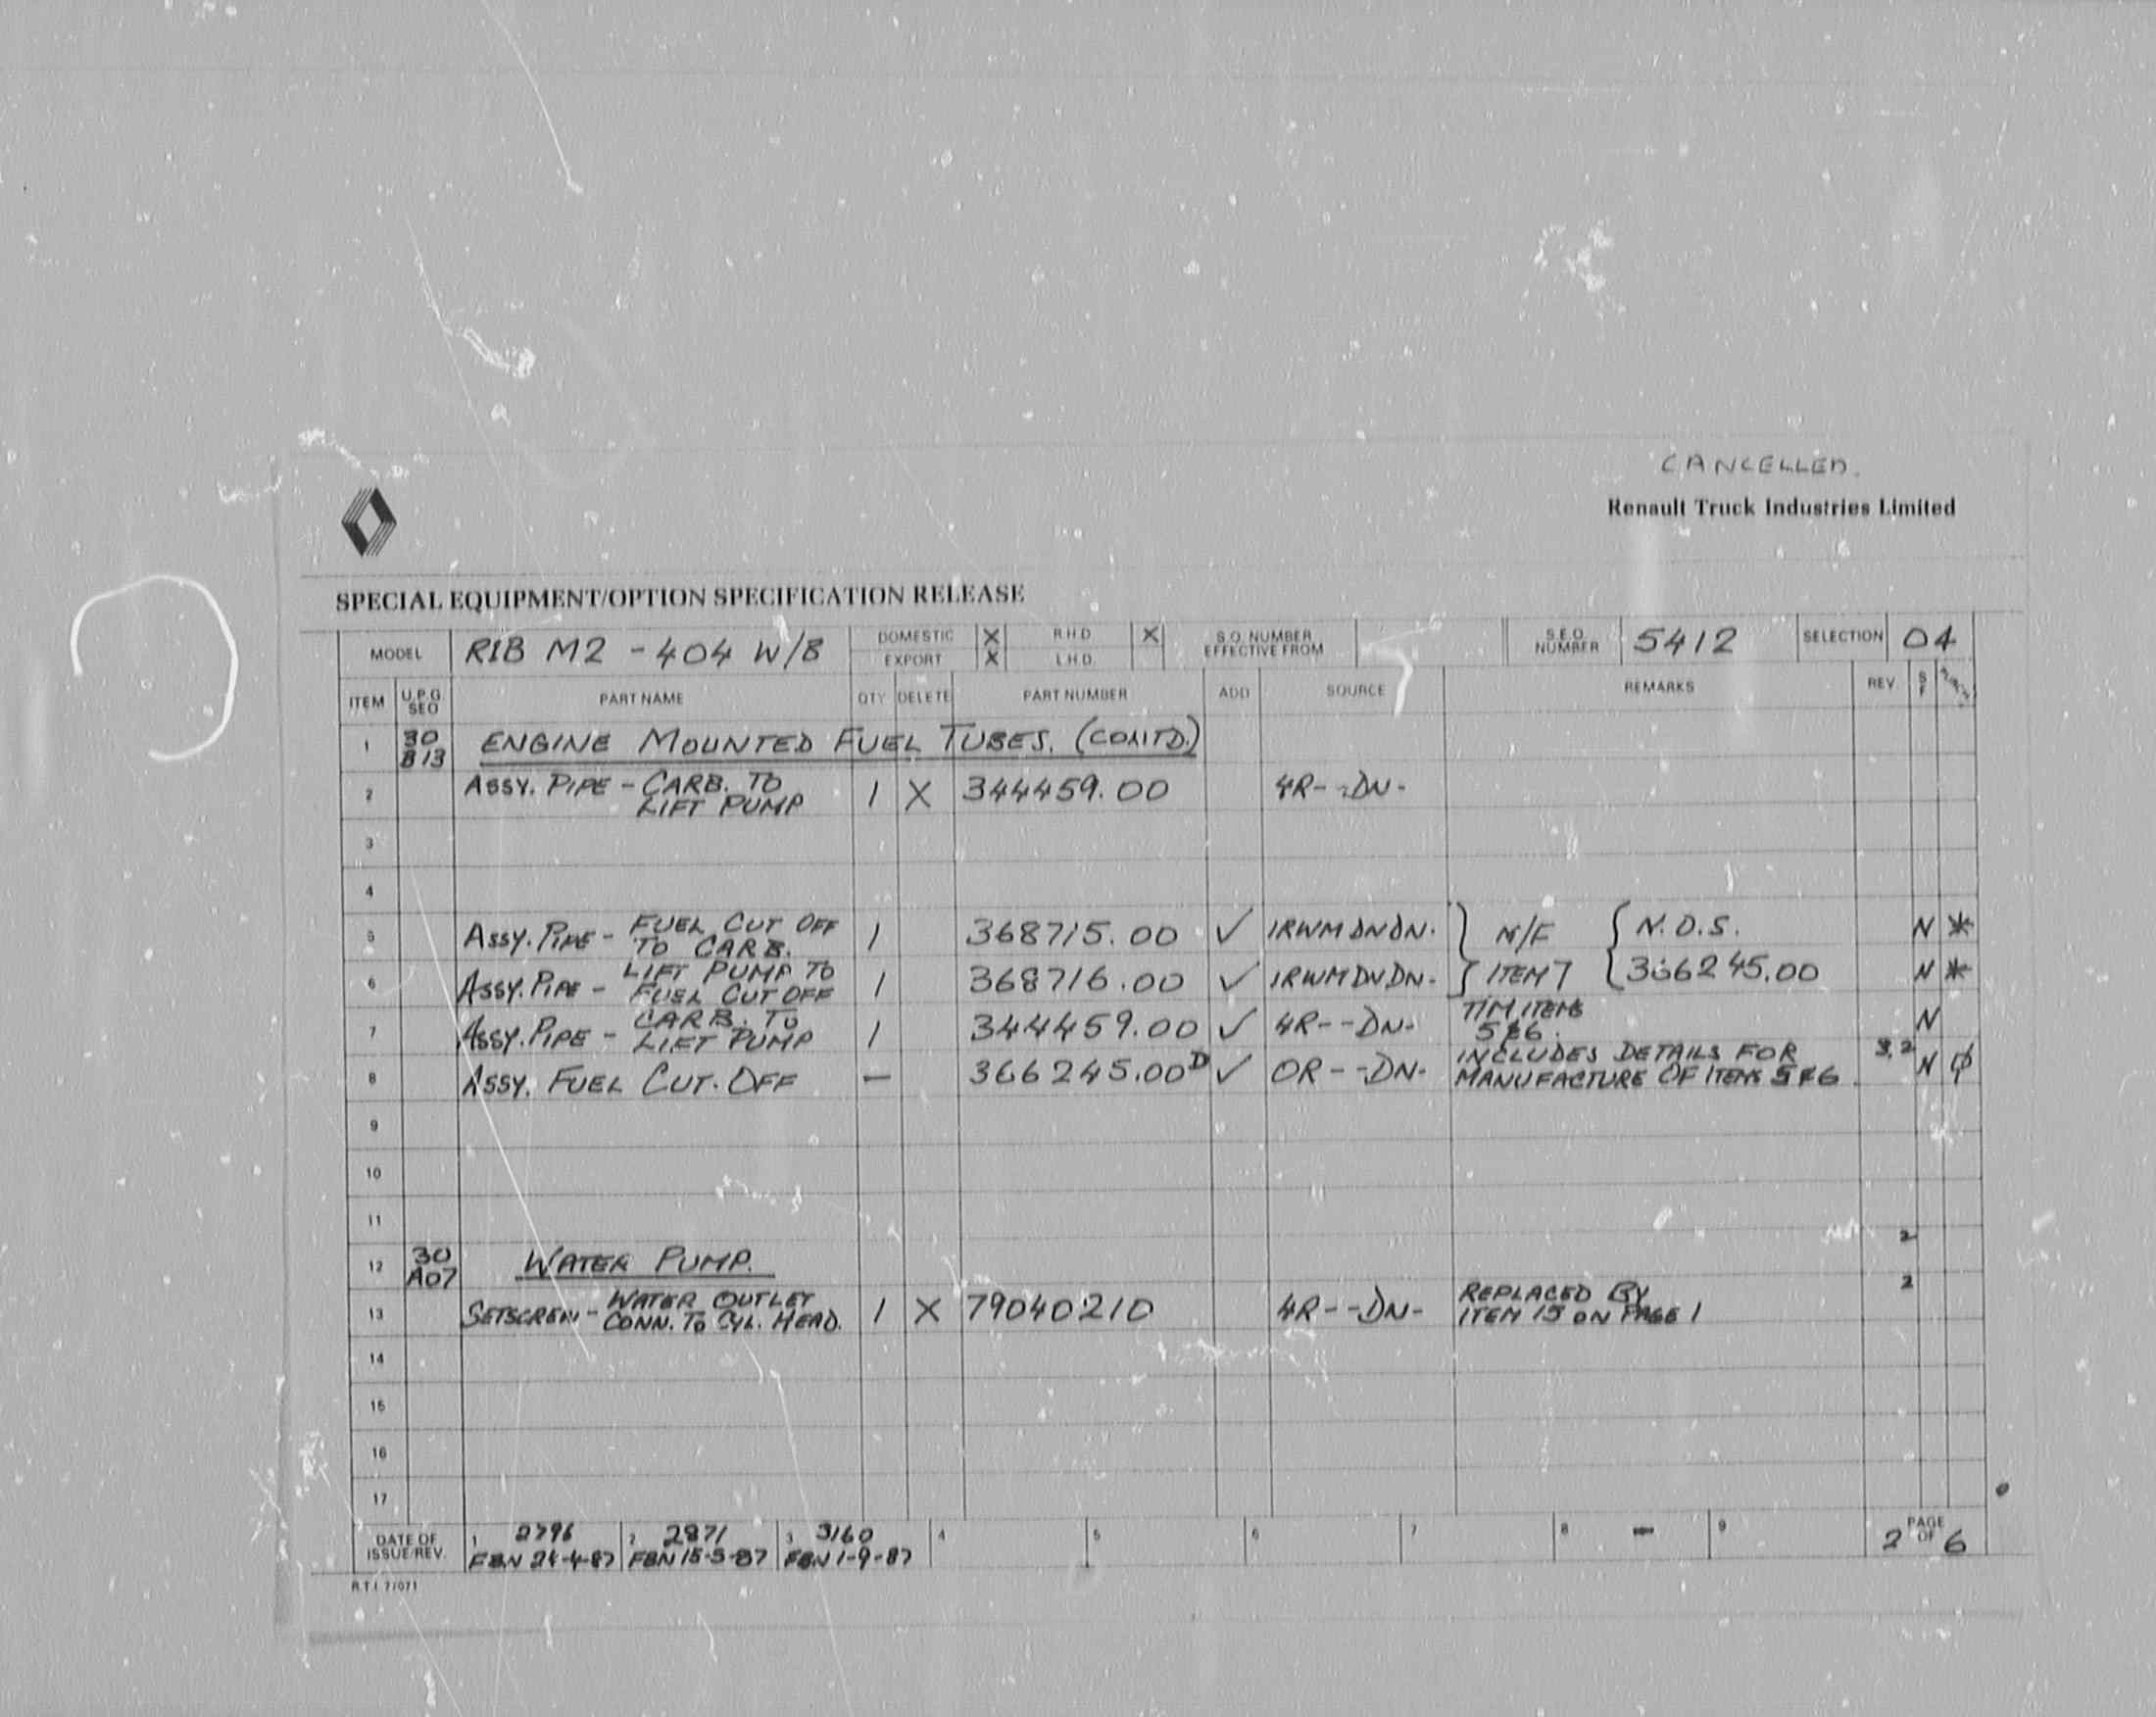 CANCELLED.
Renault Truck Industries Limited
SPECIAL EQUIPMENT/OPTION SPECIFICATION RELEASE
MODEL RIB M2 - 404 W/B DOMESTIC X R.H.D X S.O. NUMBER EFFECTIVE FROM S.E.O. NUMBER 5412 SELECTION 04
EXPORT X L.H.D.
ITEM U.P.G. SEO PART NAME QTY DELETE PART NUMBER ADD SOURCE REMARKS REV. S F
1 30 B13 ENGINE MOUNTED FUEL TUBES. (CONTD.)
2 ASSY. PIPE - CARB. TO LIFT PUMP 1 X 344459.00 4R--DN-
3
4
5 ASSY. PIPE - FUEL CUT OFF TO CARB. 1 368715.00 ✓ 1RWMDNDN. } N/F { N.D.S. N *
6 ASSY. PIPE - LIFT PUMP TO FUEL CUT OFF 1 368716.00 ✓ 1RWMDNDN- } ITEM 7 { 366245.00 N *
7 ASSY. PIPE - CARB. TO LIFT PUMP 1 344459.00 ✓ 4R--DN- T/M ITEMS 5 & 6. N
8 ASSY. FUEL CUT. OFF — 366245.00 D ✓ OR--DN- INCLUDES DETAILS FOR MANUFACTURE OF ITEMS 5 & 6. 3,2 N φ
9
10
11
2
12 30 A07 WATER PUMP.
2
13 SETSCREW - WATER OUTLET CONN. TO CYL. HEAD. 1 X 79040210 4R--DN- REPLACED BY ITEM 15 ON PAGE 1
14
15
16
17
DATE OF ISSUE/REV. 1 2796 2 2871 3 3160 4 5 6 7 8 - 9 PAGE 2 OF 6
FBN 24-4-87 FBN 15-5-87 FBN 1-9-87
R.T.I. 7/071